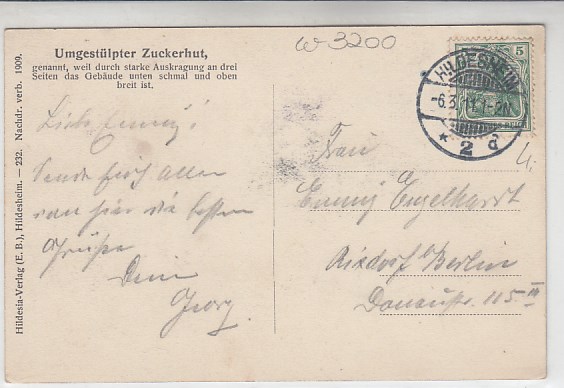 Umgestülpter Zuckerhut,
genannt, weil durch starke Auskragung an drei
Seiten das Gebäude unten schmal und oben
breit ist.
W 3200
5
HILDESHEIM
-6.3.11.1-2N.
* 2 d
Hildesia-Verlag (E. B.), Hildesheim. — 232. Nachdr. verb. 1909.
Liebe Emmy!
Sende Euch allen
von hier die besten
Grüße
Dein
Georg.
Frau
Emmy Engelhardt
Rixdorf b/Berlin
Donaustr. 115 III